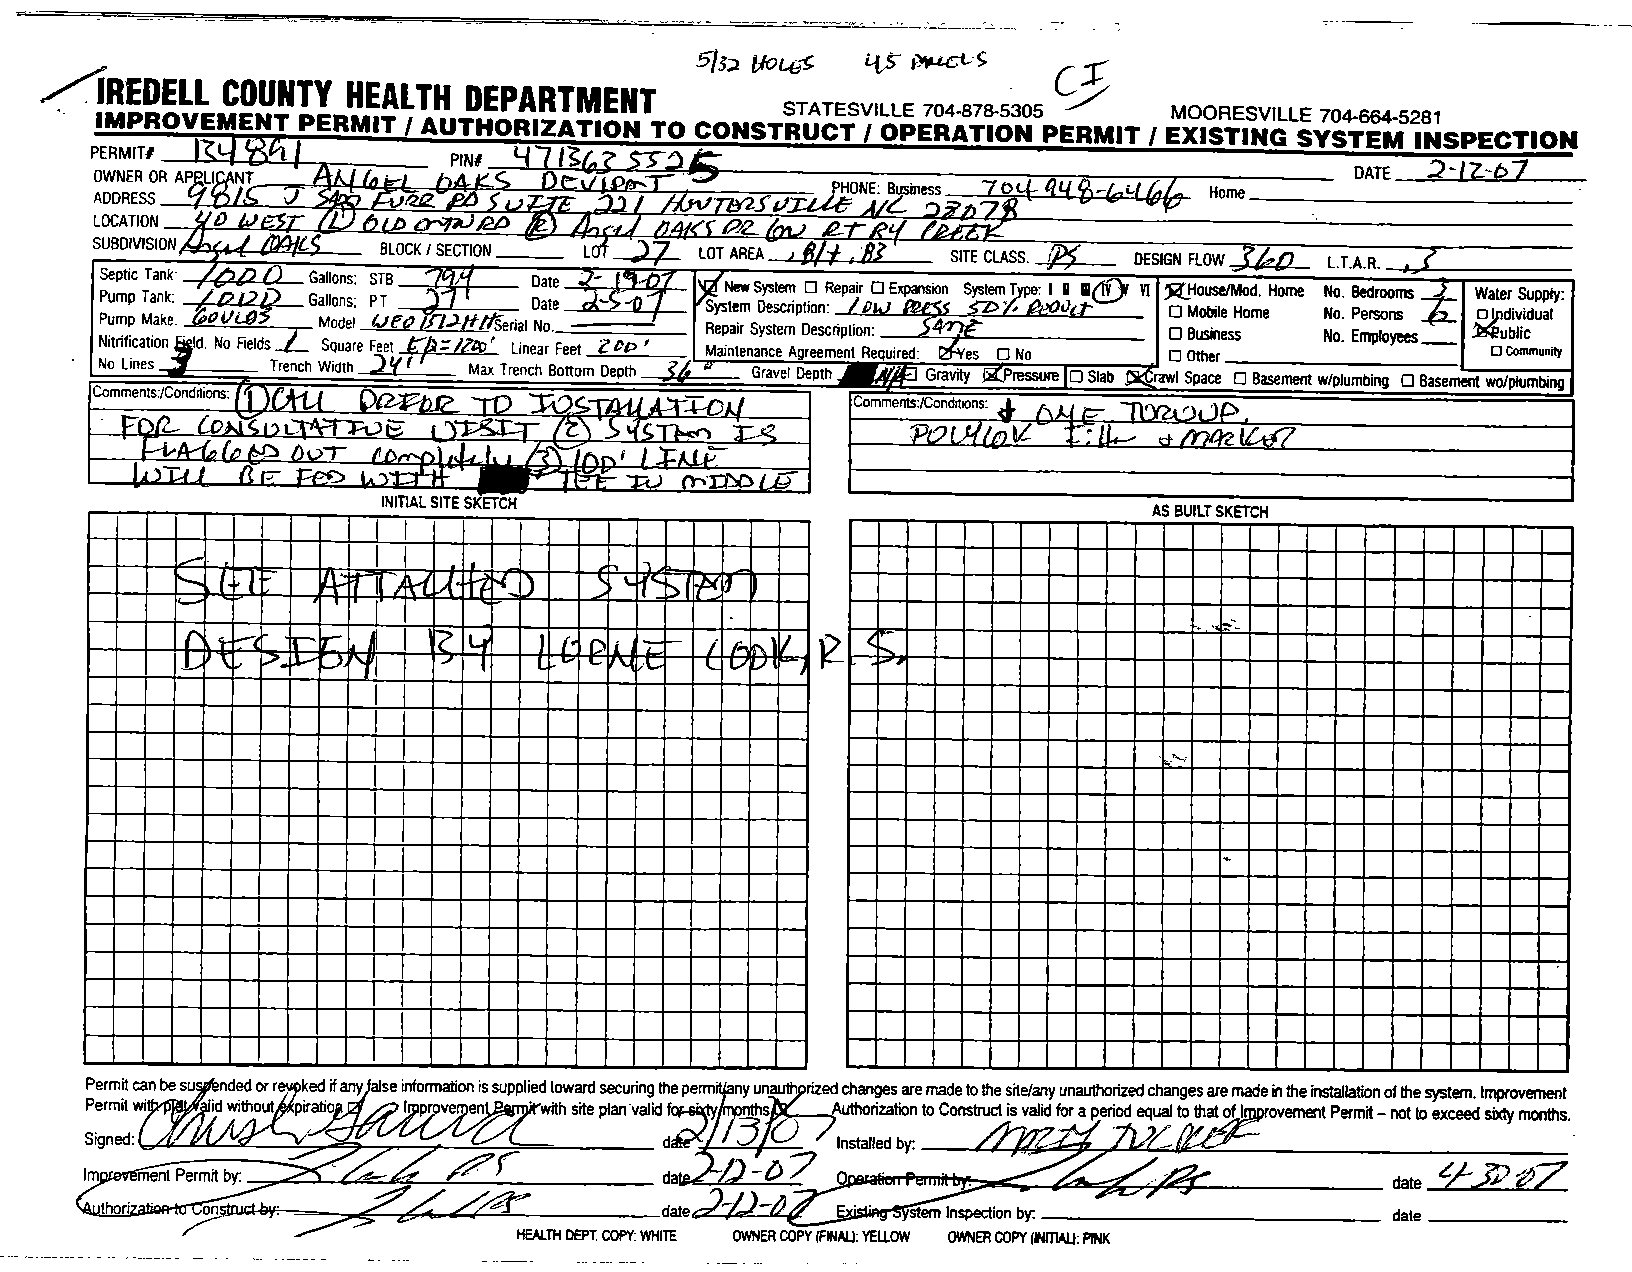 5/32 HOLES 45 PANELS
CI
IREDELL COUNTY HEALTH DEPARTMENT STATESVILLE 704-878-5305 MOORESVILLE 704-664-5281
IMPROVEMENT PERMIT / AUTHORIZATION TO CONSTRUCT / OPERATION PERMIT / EXISTING SYSTEM INSPECTION
PERMIT# 134891 PIN# 4713635525 DATE 2-12-07
OWNER OR APPLICANT ANGEL OAKS DEVLPMT PHONE: Business 704 948-6466 Home
ADDRESS 9815 J SAM FURR RD SUITE 221 HUNTERSVILLE NC 28078
LOCATION 40 WEST (L) OLD MTN RD (R) Angel OAKS DR LOW RT BY CREEK
SUBDIVISION Angel OAKS BLOCK / SECTION LOT 27 LOT AREA SITE CLASS. PS DESIGN FLOW 360 L.T.A.R. .3
Septic Tank: 1000 Gallons: STB 794 Date 2-19-07 New System Repair Expansion System Type: I II III IV V VI House/Mod. Home No. Bedrooms 3 Water Supply:
Pump Tank: 1000 Gallons: PT 271 Date 2-5-07 System Description: LOW PRESS 50% REDUCT Mobile Home No. Persons 6 Individual
Pump Make. GOULDS Model WE01512HH Serial No. Repair System Description: SAME Business No. Employees Public
Nitrification Field. No Fields 1 Square Feet EQ=1200' Linear Feet 200' Maintenance Agreement Required: Yes No Other Community
No Lines 3 Trench Width 24" Max Trench Bottom Depth 36" Gravel Depth N/A Gravity Pressure Slab Crawl Space Basement w/plumbing Basement wo/plumbing
Comments:/Conditions: (1) CALL PRIOR TO INSTALLATION
FOR CONSULTATIVE VISIT (2) SYSTEM IS
FLAGGED OUT completely (3) 100' LINE
WILL BE FED WITH TEE IN MIDDLE
Comments:/Conditions: ONE TURNUP,
POLYLOK Filter + MARKER
INITIAL SITE SKETCH
AS BUILT SKETCH
SEE ATTACHED SYSTEM
DESIGN BY LORNE COOK, R.S.
Permit can be suspended or revoked if any false information is supplied toward securing the permit/any unauthorized changes are made to the site/any unauthorized changes are made in the installation of the system. Improvement
Permit with plat valid without expiration Improvement Permit with site plan valid for sixty months Authorization to Construct is valid for a period equal to that of Improvement Permit – not to exceed sixty months.
Signed: date 2/13/07 Installed by: MARTY TUCKER
Improvement Permit by: RS date 2-12-07 Operation Permit by: RS date 4-30-07
Authorization to Construct by: RS date 2-12-07 Existing System Inspection by: date
HEALTH DEPT. COPY: WHITE OWNER COPY (FINAL): YELLOW OWNER COPY (INITIAL): PINK